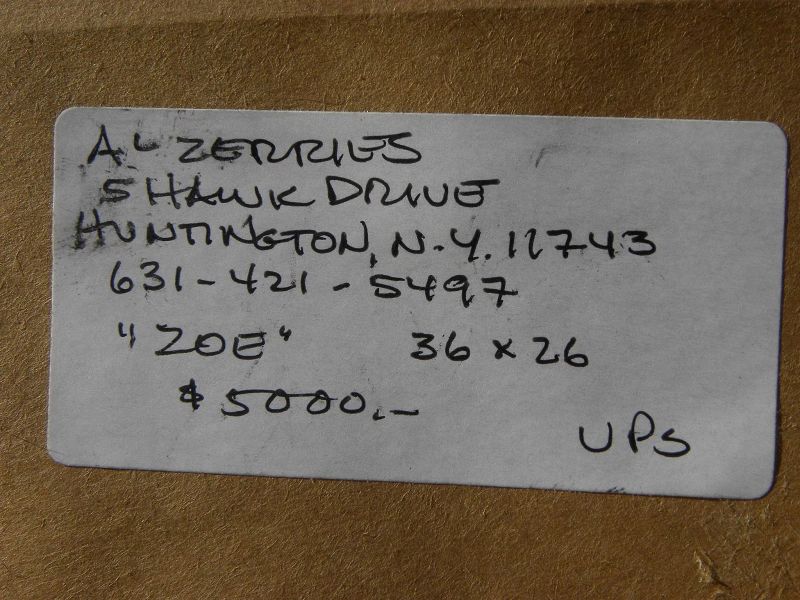 AL ZERRIES
5 HAWK DRIVE
HUNTINGTON, N.Y. 11743
631-421-5497
"ZOE" 36 x 26
$5000.-
UPS